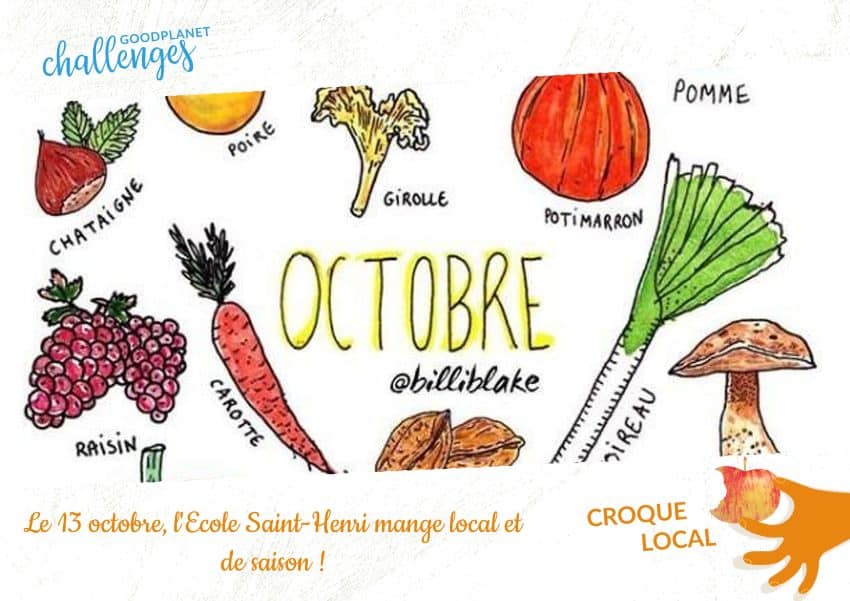 GOODPLANET
challenges
POMME
POIRE
GIROLLE
CHATAIGNE
POTIMARRON
OCTOBRE
@billiblake
CAROTTE
RAISIN
Le 13 octobre, l'Ecole Saint-Henri mange local et
de saison !
CROQUE
LOCAL